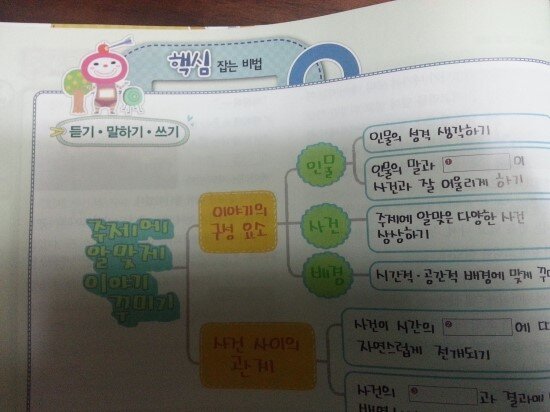 핵심 잡는 비법
듣기·말하기·쓰기
주제에
알맞게
이야기
꾸미기
이야기의
구성 요소
인물
인물의 성격 생각하기
인물의 말과 ❶ 이
사건과 잘 어울리게 하기
사건
주제에 알맞은 다양한 사건
상상하기
배경
시간적·공간적 배경에 맞게
사건 사이의
관계
사건이 시간의 ❷ 에
자연스럽게 전개되기
사건의 과 결과에